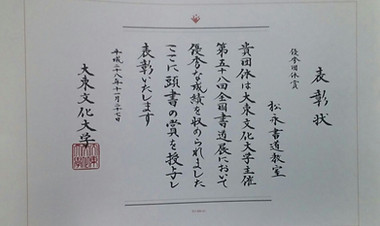 表彰状
優秀団体賞
松永書道教室
貴団体は大東文化大学主催
第五十八回全国書道展において
優秀な成績を収められました
ここに頭書の賞を授与し
表彰いたします
平成二十八年十一月二十七日
大東文化大学